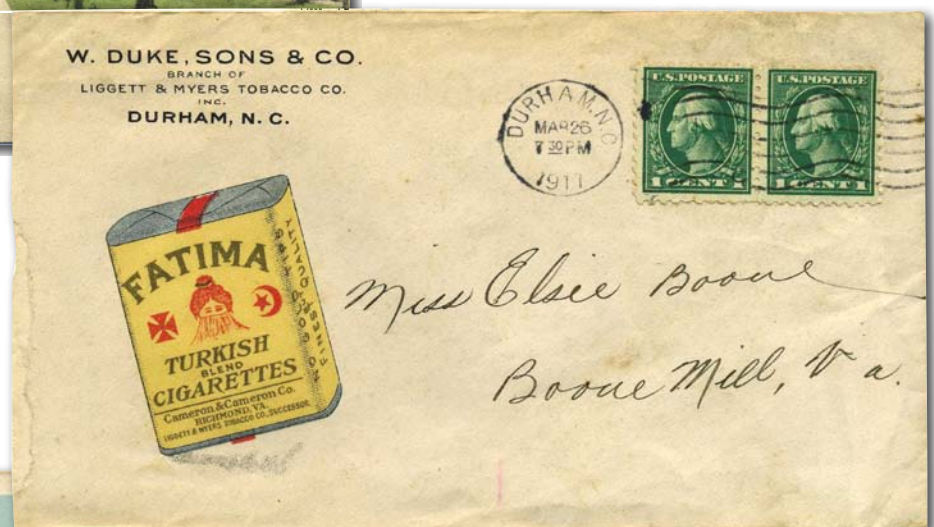 W. DUKE, SONS & CO.
BRANCH OF
LIGGETT & MYERS TOBACCO CO.
INC.
DURHAM, N. C.
DURHAM, N.C.
MAR 26
7 30 PM
1917
U.S. POSTAGE
1 CENT 1
U.S. POSTAGE
1 CENT 1
FATIMA
TURKISH
BLEND
CIGARETTES
Cameron & Cameron Co.
RICHMOND, VA.
LIGGETT & MYERS TOBACCO CO., SUCCESSOR
FINEST QUALITY
Miss Elsie Boone
Boone Mill, Va.